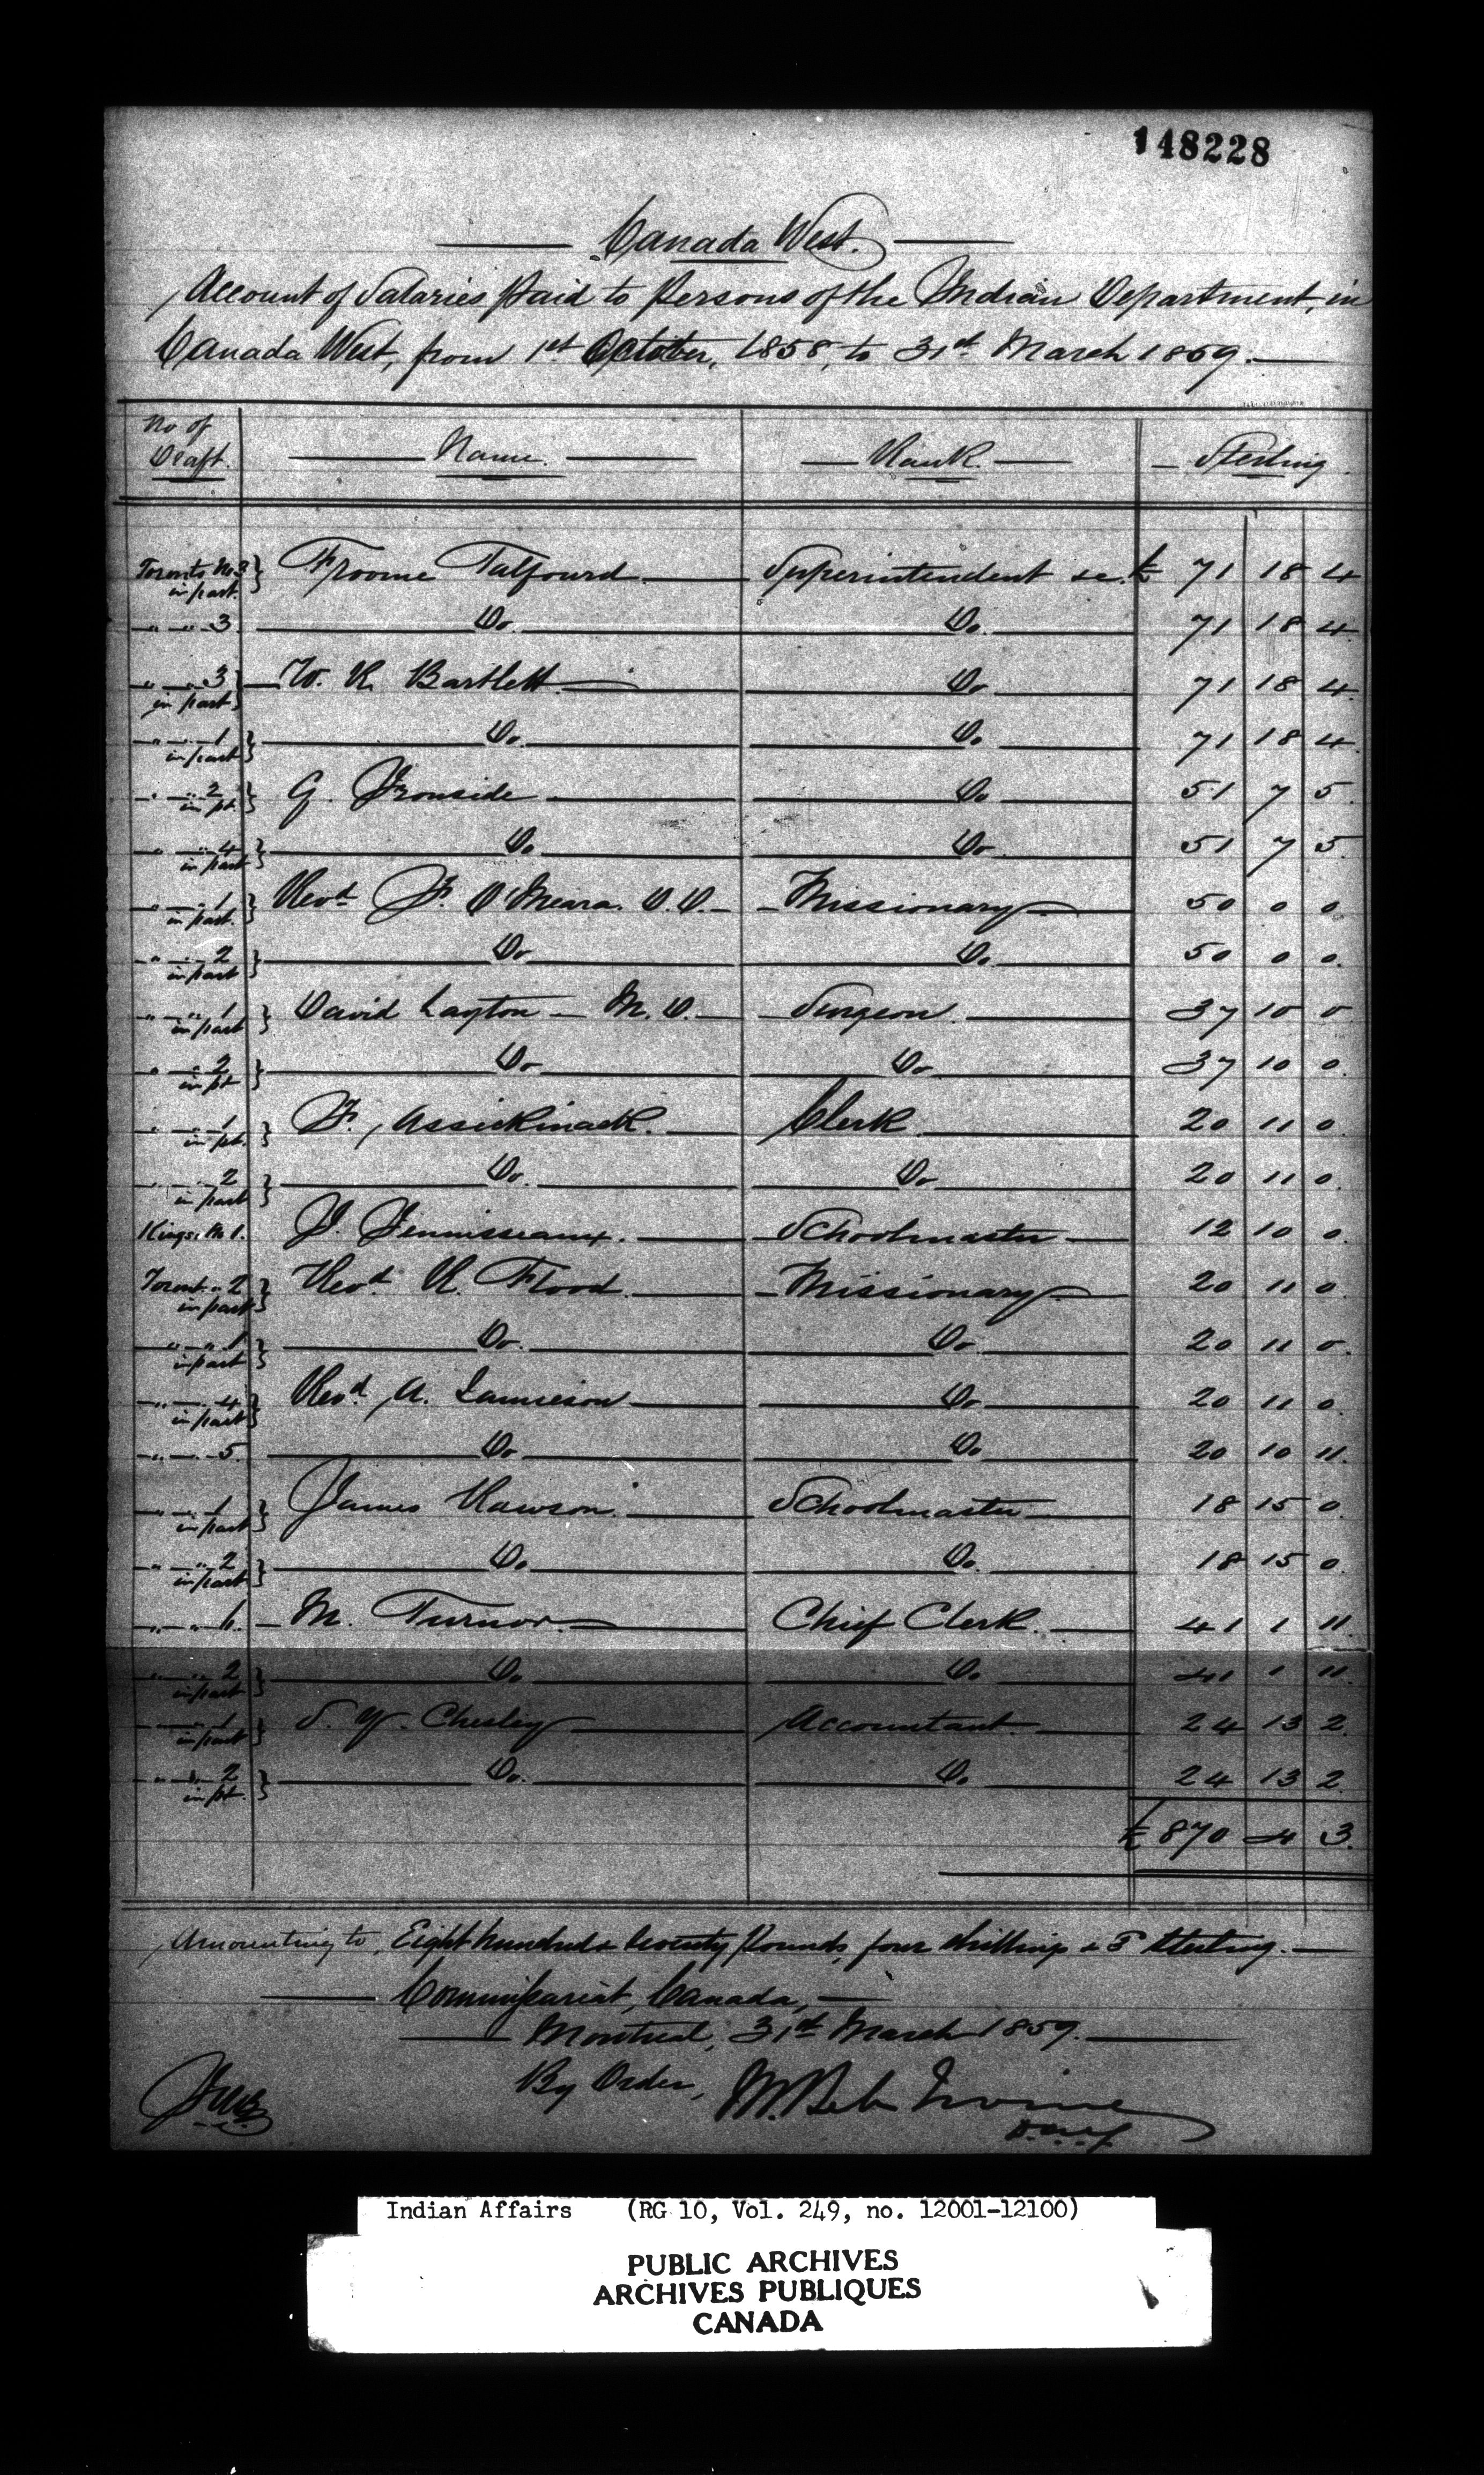 148228
Canada West.
Account of Salaries Paid to Persons of the Indian Department, in
Canada West, from 1st October, 1858, to 31st March 1859.
No of Draft. Name. Rank. Sterling
Toronto No 3 in part. Froome Talfourd Superintendent &c. £ 71 18 4
" " 3 Do. Do. 71 18 4
" " 3 in part W. R. Bartlett Do 71 18 4
" " 1 in part Do. Do. 71 18 4
" " 2 in pt. G. Ironside Do 51 7 5
" " 4 in part Do Do 51 7 5
" " 1 in part. Revd. F. O'Meara. D.D. Missionary 50 0 0
" " 2 in part Do Do. 50 0 0
" " 1 in part David Layton M.D. Surgeon. 37 10 0
" " 2 in pt. Do Do 37 10 0
" " 1 in pt. F. Assickinack. Clerk 20 11 0
" " 2 in part Do. Do 20 11 0
Kings. No 1. J. Jennisseaux. Schoolmaster 12 10 0
Toront. " 2 in part Revd. R. Flood. Missionary 20 11 0
" " 1 in part Do. Do. 20 11 0
" " 4 in part Revd. A. Jamieson Do. 20 11 0
" " 5 Do Do 20 10 11
" " 1 in part James Rawson. Schoolmaster 18 15 0
" " 2 in part Do Do. 18 15 0
" " 1. M. Turnor. Chief Clerk. 41 1 11
" " 2 in part Do Do. 41 1 11
" " 1 in part S. Y. Chesley Accountant. 24 13 2
" " 2 in pt. Do. Do 24 13 2
£ 870 4 3
Amounting to, Eight hundred & seventy Pounds, four shillings & 3 Sterling.
Commissariat, Canada,
Montreal, 31st March 1859.
By Order,
Irvine
Indian Affairs (RG 10, Vol. 249, no. 12001-12100)
PUBLIC ARCHIVES
ARCHIVES PUBLIQUES
CANADA